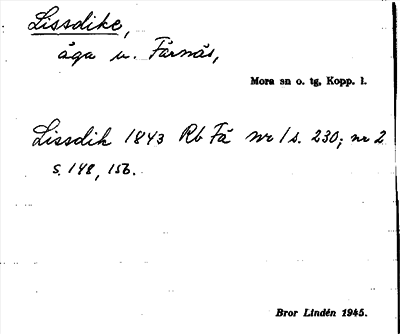 Lissdike,
äga u. Färnäs,
Mora sn o. tg, Kopp. l.
Lissdik 1843 Rb Fä nr 1 s. 230; nr 2
s. 148, 156.
Bror Lindén 1945.